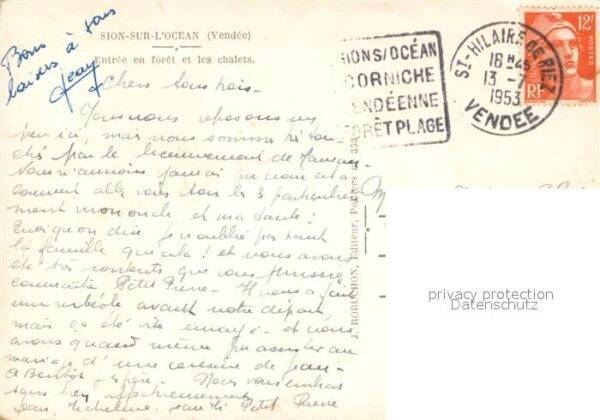 SION-SUR-L'OCEAN (Vendée)
Entrée en forêt et les chalets.
Bons
baisers à tous
Jean
SIONS/OCÉAN
CORNICHE
VENDÉENNE
FORÊT PLAGE
ST-HILAIRE DE RIEZ
18H45
13 - 7
1953
VENDEE
12F
RF
Chers tous trois -
Nous nous reposons un
peu ici, mais nous sommes très tou
chés par le
Nous n'aurions jamais
comment allez vous tous les 3 particulière
ment mon oncle et ma tante!
Quoiqu'on dise je n'oublie pas tant
la famille que cela! et nous avons
été très contents que vous puissiez
connaître Petit Pierre - Il nous a fait
une rubéole avant notre départ
mais ça a été vite enrayé - et nous
avons quand même pu assister au
mariage d'une cousine de Jean -
A Bientôt j'espère - Nous vous embras
sons bien affectueusement
Jean, Micheline, Petit Pierre
J. ROBUCHON, Editeur, Poitiers 353
M
privacy protection
Datenschutz